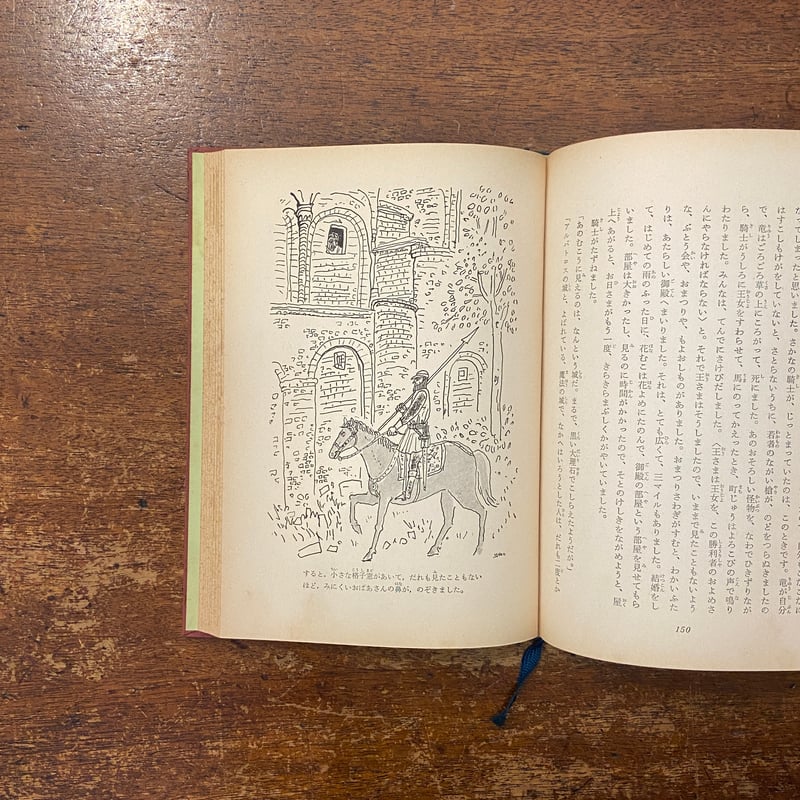 てしまったと思いました。さかなの騎士が、じっとまっていたのは、このときです。竜が自分
はすこしもけがをしていないと、さとらないうちに、若者のながい槍が、のどをつらぬきましたの
で、竜はごろごろ草の上にころがって、死にました。あのおそろしい怪物を、なわでひきずりなが
ら、騎士がうしろに王女をすわらせて、馬にのってかえったとき、町じゅうはよろこびの声で鳴り
わたりました。みんなは、てんでにさけびだしました。〈王さまは王女を、この勝利者のおよめさ
んにやらなければならない〉と。それで王さまはそうしましたので、いままで見たこともないよう
な、ぶとう会や、おまつりや、もよおしものがありました。おまつりさわぎがすむと、わかいふた
りは、あたらしい御殿へまいりました。それは、とても広くて、三マイルもありました。結婚をし
て、はじめての雨のふった日に、花むこは花よめにたのんで、御殿の部屋という部屋を見せてもら
いました。部屋は大きかったし、見るのに時間がかかったので、そとのけしきをながめようと、屋
上へあがると、お日さまがもう一度、きらきらまぶしくかがやいていました。
騎士がたずねました。
「あのむこうに見えるのは、なんという城だ。まるで、黒い大理石でこしらえたようだが。」
「アルバトロスの城と、よばれている、魔法の城で、なかへはいろうとした人は、だれも二度とか
150
すると、小さな格子窓があいて、だれも見たこともない
ほど、みにくいおばあさんの鼻が、のぞきました。